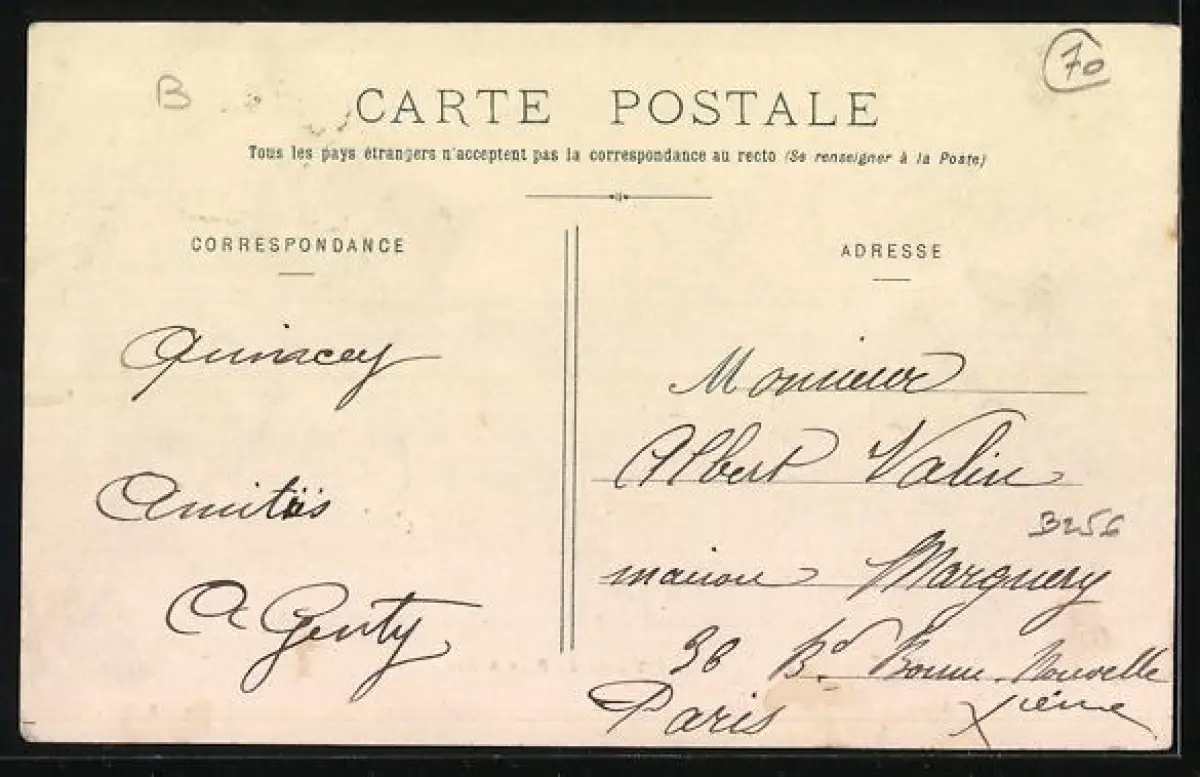 70
B
CARTE POSTALE
Tous les pays étrangers n'acceptent pas la correspondance au recto (Se renseigner à la Poste)
CORRESPONDANCE
Quincey
Amitiés
A Genty
ADRESSE
Monsieur
Albert Valin
3256
maison Marguery
36 Bd. Bonne-Nouvelle
Paris Xième